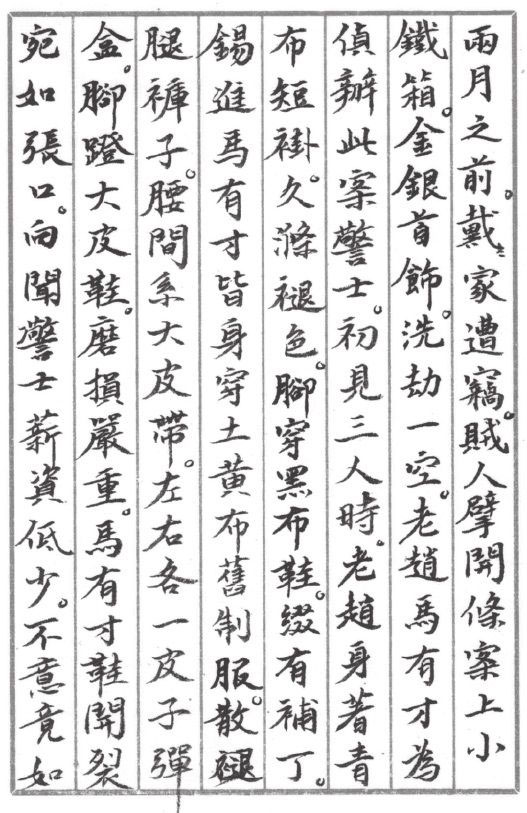 兩月之前。戴家遭竊。賊人擘開條案上小
鐵箱。金銀首飾。洗劫一空。老趙馬有才為
偵辦此案警士。初見三人時。老趙身著青
布短褂。久滌褪色。腳穿黑布鞋。綴有補丁。
錫進馬有才皆身穿土黃布舊制服。散腿
腿褲子。腰間系大皮帶。左右各一皮子彈
盒。腳蹬大皮鞋。磨損嚴重。馬有才鞋開裂
宛如張口。向聞警士薪資低少。不意竟如